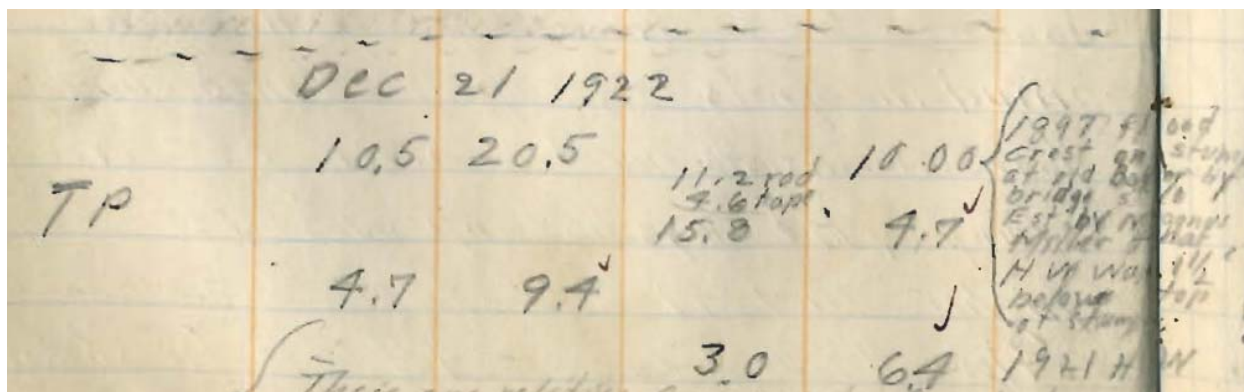 Dec 21 1922
10.5 20.5 10.00
TP
11.2 rod
4.6 tape
15.8 4.7 ✓
4.7 9.4 ✓
3.0 6.4 ✓
1897 flood
crest on stump
at old by
bridge
Est by
Miller that
H W was 1 1/2
below top
of stump
1921 H W
There are